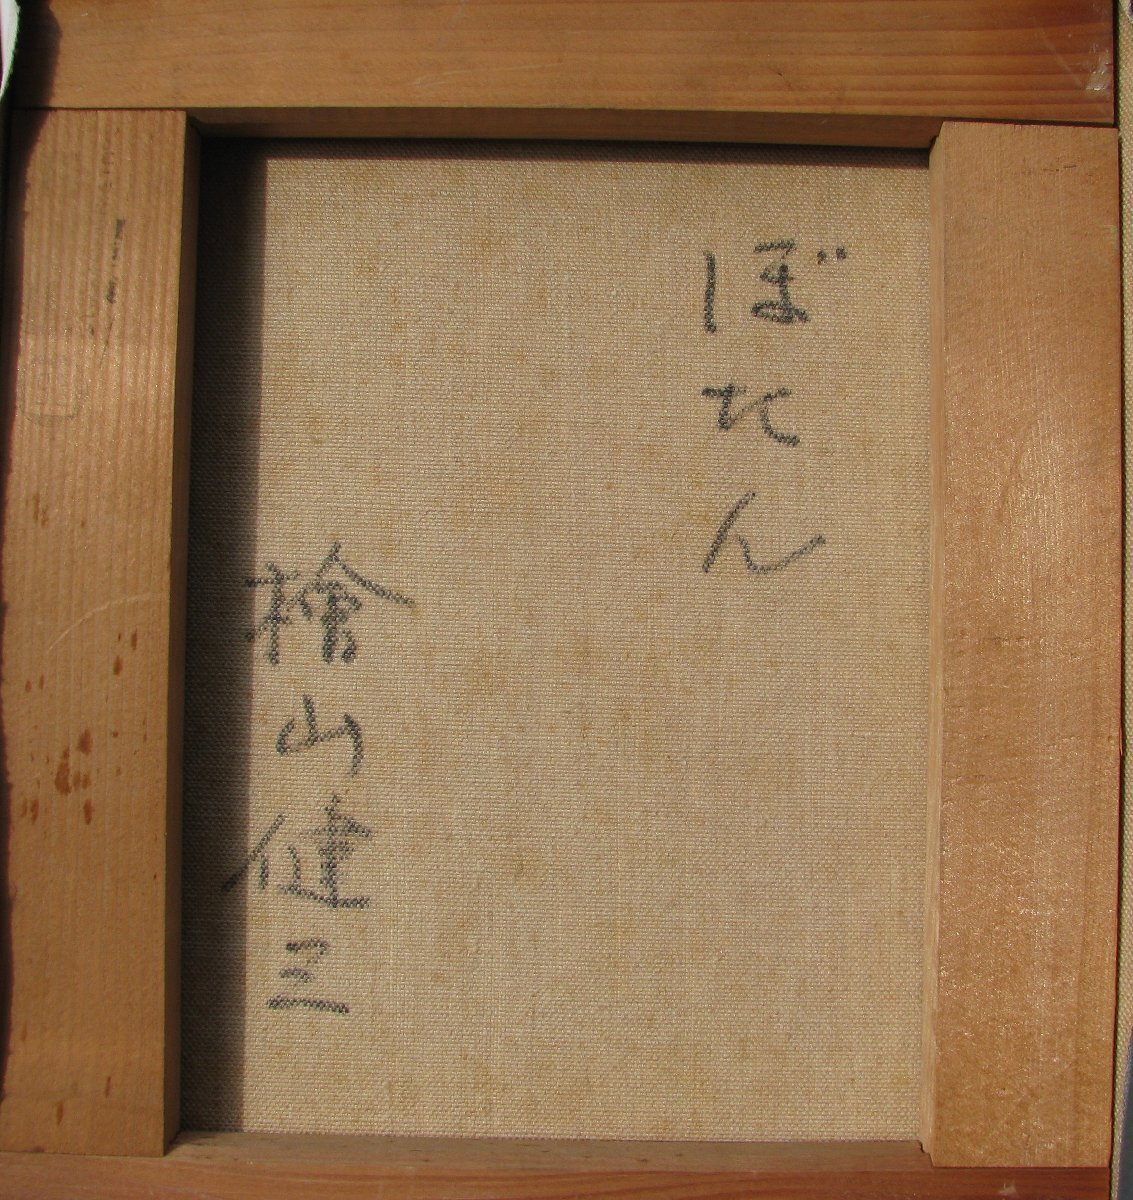 ぼたん
檜山健三